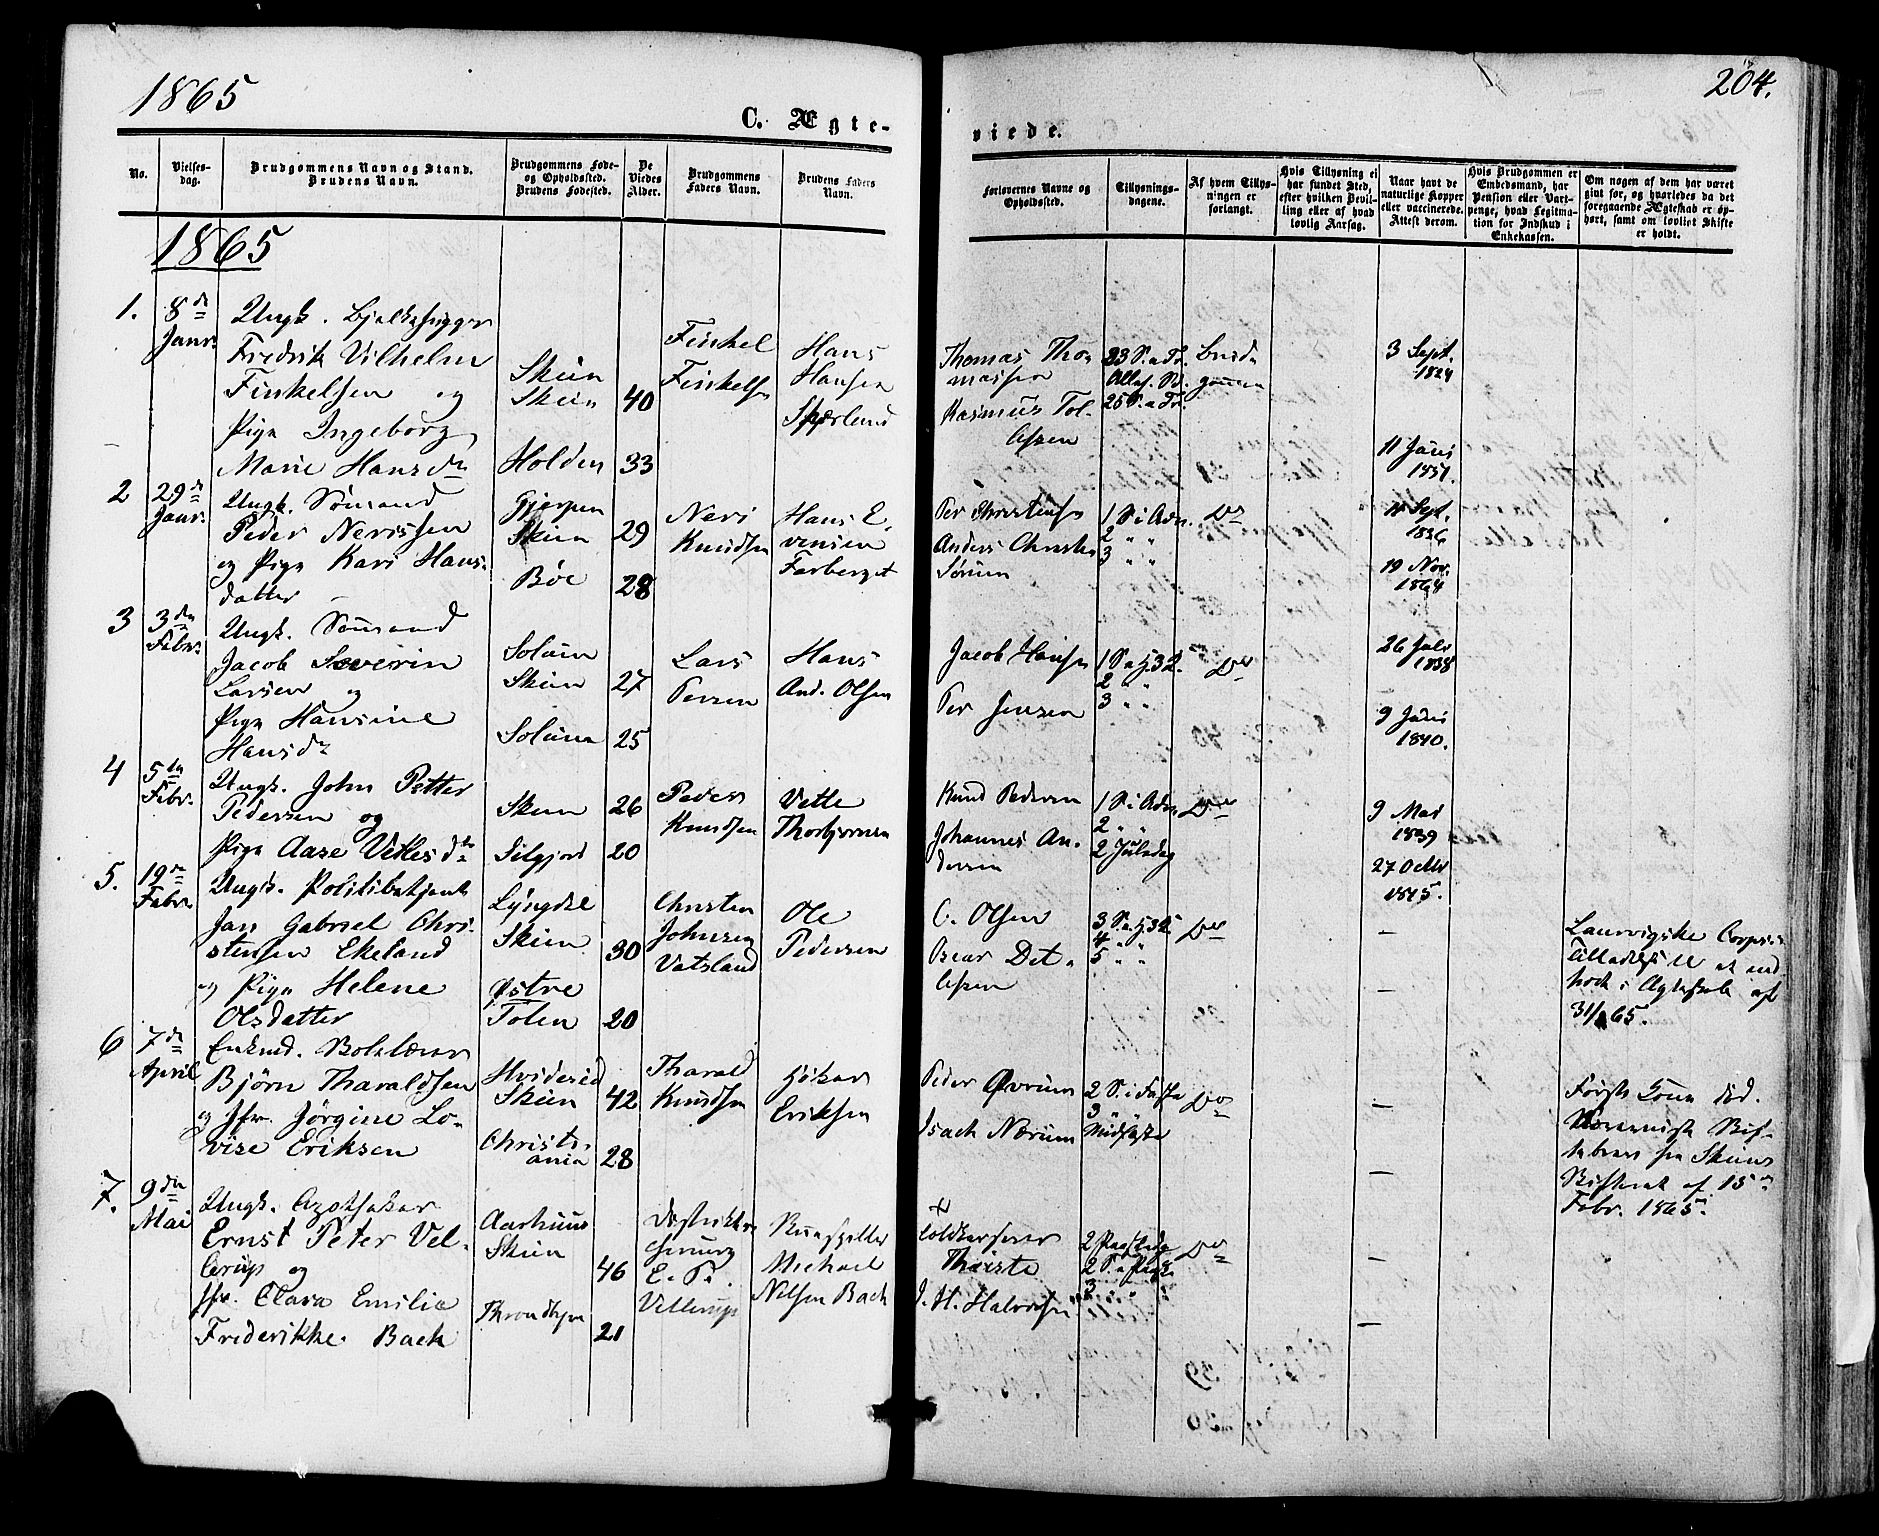 1865
204.
C. Ægte-
viede.
No.
Vielses-
dag.
Brudgommens Navn og Stand.
Brudens Navn.
Brudgommens Føde-
og Opholdssted.
Brudens Fødested.
De
Viedes
Alder.
Brudgommens
Faders Navn.
Brudens Faders
Navn.
Forlovernes Navne og
Opholdssted.
Tillysnings-
dagene.
Af hvem Tillys-
ningen er
forlangt.
Hvis Tillysning ei
har fundet Sted,
efter hvilken Bevil-
ling eller af hvad
lovlig Aarsag.
Naar havt de
naturlige Kopper
eller vaccinerede.
Attest derom.
Hvis Brudgommen er
Embedsmand, har
Pension eller Vart-
penge, hvad Legitima-
tion for Indskud i
Enkekassen.
Om nogen af dem har været
gift før, og hvorledes da det
foregaaende Ægteskab er op-
hørt, samt om lovligt Skifte
er holdt.
1865
1.
8de
Janr.
Ungk. Bjelkehugger
Fredrik Vilhelm
Finkelsen og
Pige Ingeborg
Marie Hansdr
Skien
Skien
Holden
40
33
Finkel
Finkelsen
Hans
Hansen
Thomas Tho-
massen
Rasmus Tol-
lefsen
23 S. a Tr.
25 S. a Tr.
Brud-
gommen
3 Sept.
1824
11 Juni
1831.
2
29de
Janr.
Ungk. Sømand
Peder Nerissen
og Pige Kari Hans-
datter
Gjerpen
Skien
Bøe
29
28
Neri
Knudsen
Hans E-
vensen
Farberget
Per Christensen
Anders Christen
1 S. i Adv.
2 " "
3 " "
Do
11 Sept.
1836
19 Nov.
1864
3
3die
Febr.
Ungk. Sømand
Jacob Severin
Larsen og
Pige Hansine
Hansdr
Solum
Skien
Solum
27
25
Lars
Persen
Hans
And. Olsen
Jacob Hansen
Per Jensen
1 S. a H. 3 K.
2 " "
3 " "
Do
26 Juli
1838
9 Juni
1840.
4
5te
Febr.
Ungk. John Petter
Pedersen og
Pige Aase Vetlesdtr
Skien
Silgjord
26
20
Peder
Knudsen
Vetle
Thorbjørnsen
Knud Pedersen
Johannes An-
dersen
1 S. i Adv.
2 " "
2 Juledag
Do
9 Mai
1839
27 Octbr
1845.
5.
19de
Febr.
Ungk. Politibetjent
Jan Gabriel Chri-
stensen Ekeland
og Pige Helene
Olsdatter
Lyngdal
Skien
Østre
Toten
30
20
Christen
Johnsen
Vatsland
Ole
Pedersen
C. Olsen
Det-
lefsen
3 S. a H. 3 K.
4 " "
5 " "
Do
Laurvigske Corps's
Tilladelse til at ind-
træde i Ægteskab af
31/1 65.
6
7de
April
Enkmd.
Bjørn Tharaldsen
og Jfr. Jørgine Lo-
vise Eriksen
Hvideseid
Skien
Christi-
ania
42
28
Tharald
Knudsen
Eriksen
Peder Øvrum
Isach Nærum
2 S. i Faste
3 " "
Midfaste
Do
Første Kone død.
Skif-
tebrev fra Skiens
Skifteret af 15de
Febr. 1865.
7.
9de
Mai
Ungk. Apotheker
Ernst Peter Vel-
lerup og
Jfr. Clara Emilie
Frederikke Bach
Aarhuus
Skien
Throndhjem
46
21
Distrikts-
chirurg
E. P.
Vellerup
Michael
Nilsen Bach
Toldkasserer
J. H. Halvorsen
2 Paaskedag
2 S. a Paaske
3 " "
Do